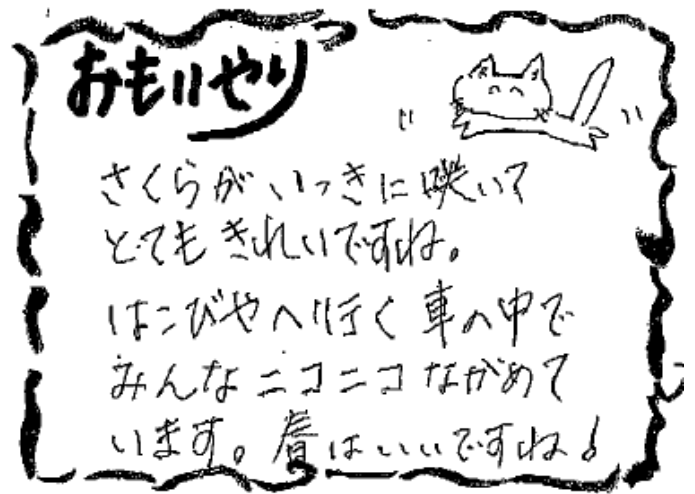 おもいやり
さくらがいっきに咲いて
とてもきれいですね。
はこびやへ行く車の中で
みんなニコニコながめて
います。春はいいですね♪